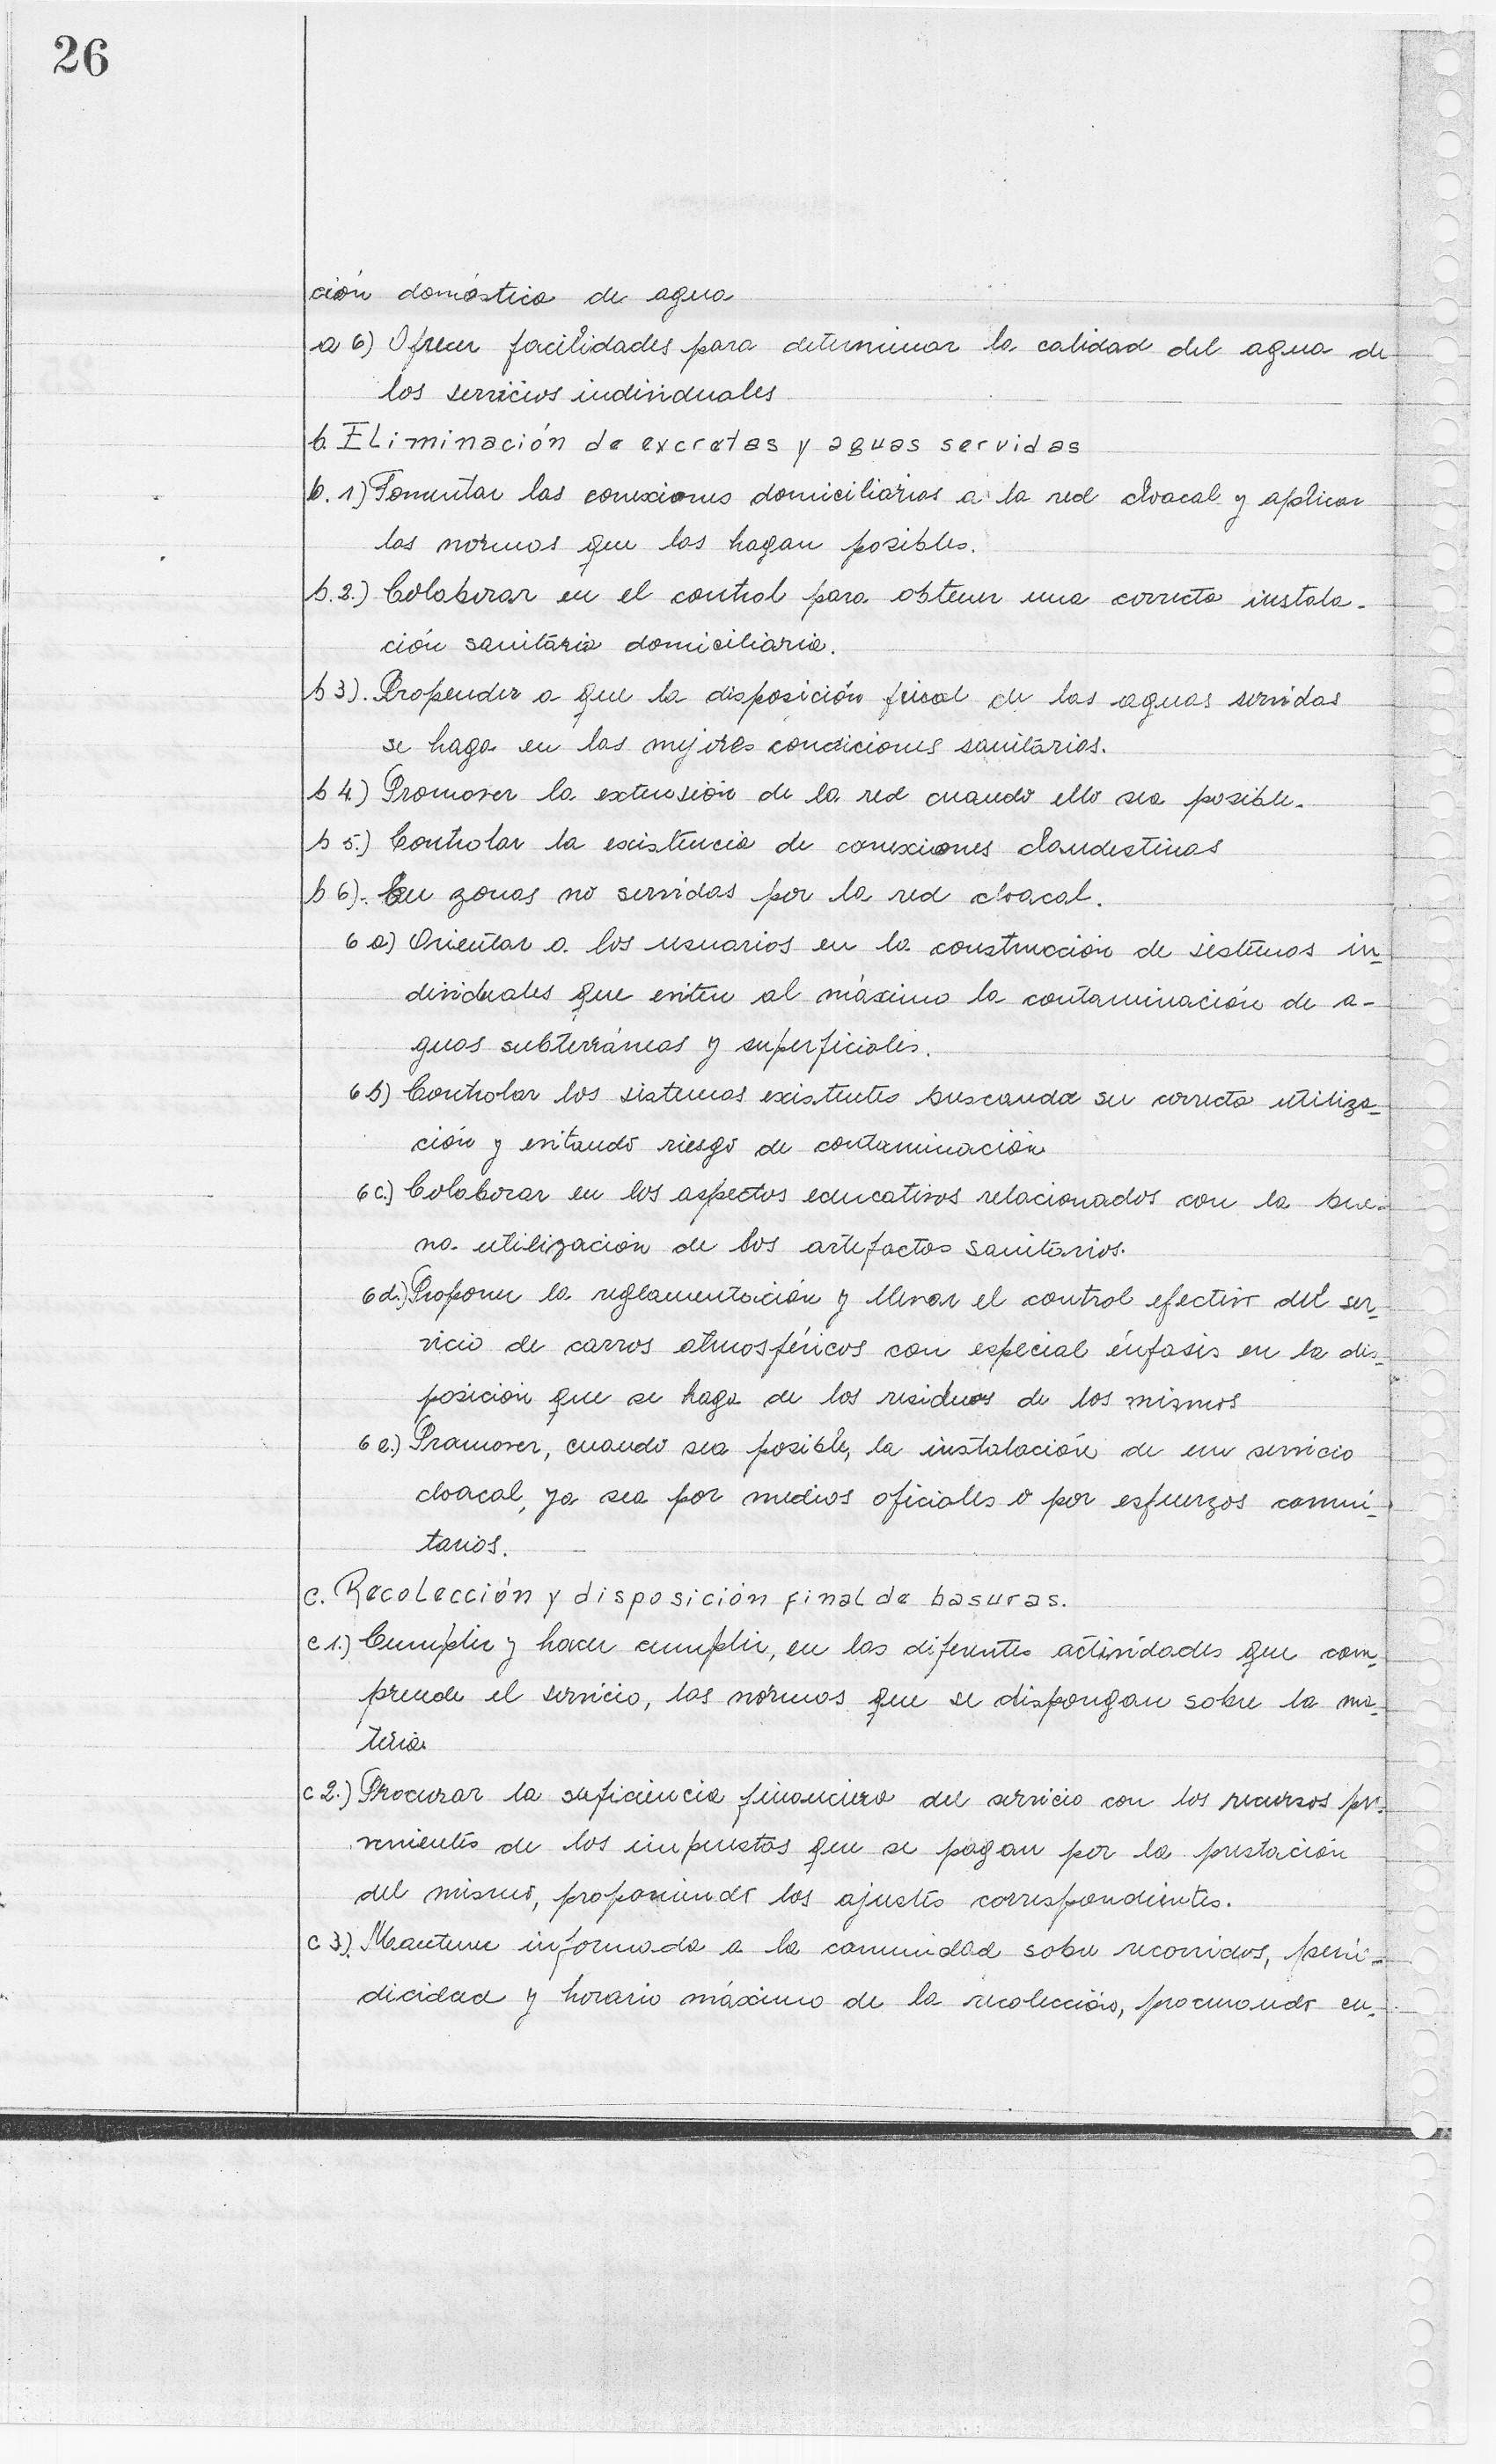 26
ción doméstica de agua
a 6) Ofrecer facilidades para determinar la calidad del agua de
los servicios individuales
b. Eliminación de excretas y aguas servidas
b. 1) Fomentar las conexiones domiciliarias a la red cloacal y aplicar
las normas que las hagan posibles.
b. 2.) Colaborar en el control para obtener una correcta instala-
ción sanitária domiciliaria.
b 3). Propender a que la disposición final de las aguas servidas
se haga en las mejores condiciones sanitárias.
b 4.) Promover la extensión de la red cuando ello sea posible.
b 5.) Controlar la existencia de conexiones clandestinas
b 6). En zonas no servidas por la red cloacal.
6 a) Orientar a los usuarios en la construcción de sistemas in-
dividuales que eviten al máximo la contaminación de a-
guas subterráneas y superficiales.
6 b) Controlar los sistemas existentes buscando su correcta utiliza-
ción y evitando riesgo de contaminación
6 c.) Colaborar en los aspectos educativos relacionados con la bue-
na utilización de los artefactos sanitários.
6 d.) Proponer la reglamentación y llevar el control efectivo del ser-
vicio de carros atmosféricos con especial énfasis en la dis-
posición que se haga de los residuos de los mismos
6 e.) Promover, cuando sea posible, la instalación de un servicio
cloacal, ya sea por medios oficiales o por esfuerzos comuni-
tarios.
c. Recolección y disposición final de basuras.
c 1.) Cumplir y hacer cumplir, en las diferentes actividades que com-
prende el servicio, las normas que se dispongan sobre la ma-
teria
c 2.) Procurar la suficiencia financiera del servicio con los recursos pro-
venientes de los impuestos que se pagan por la prestación
del mismo, proponiendo los ajustes correspondientes.
c 3). Mantener informada a la comunidad sobre recorridos, perio-
dicidad y horario máximo de la recolección, procurando en-